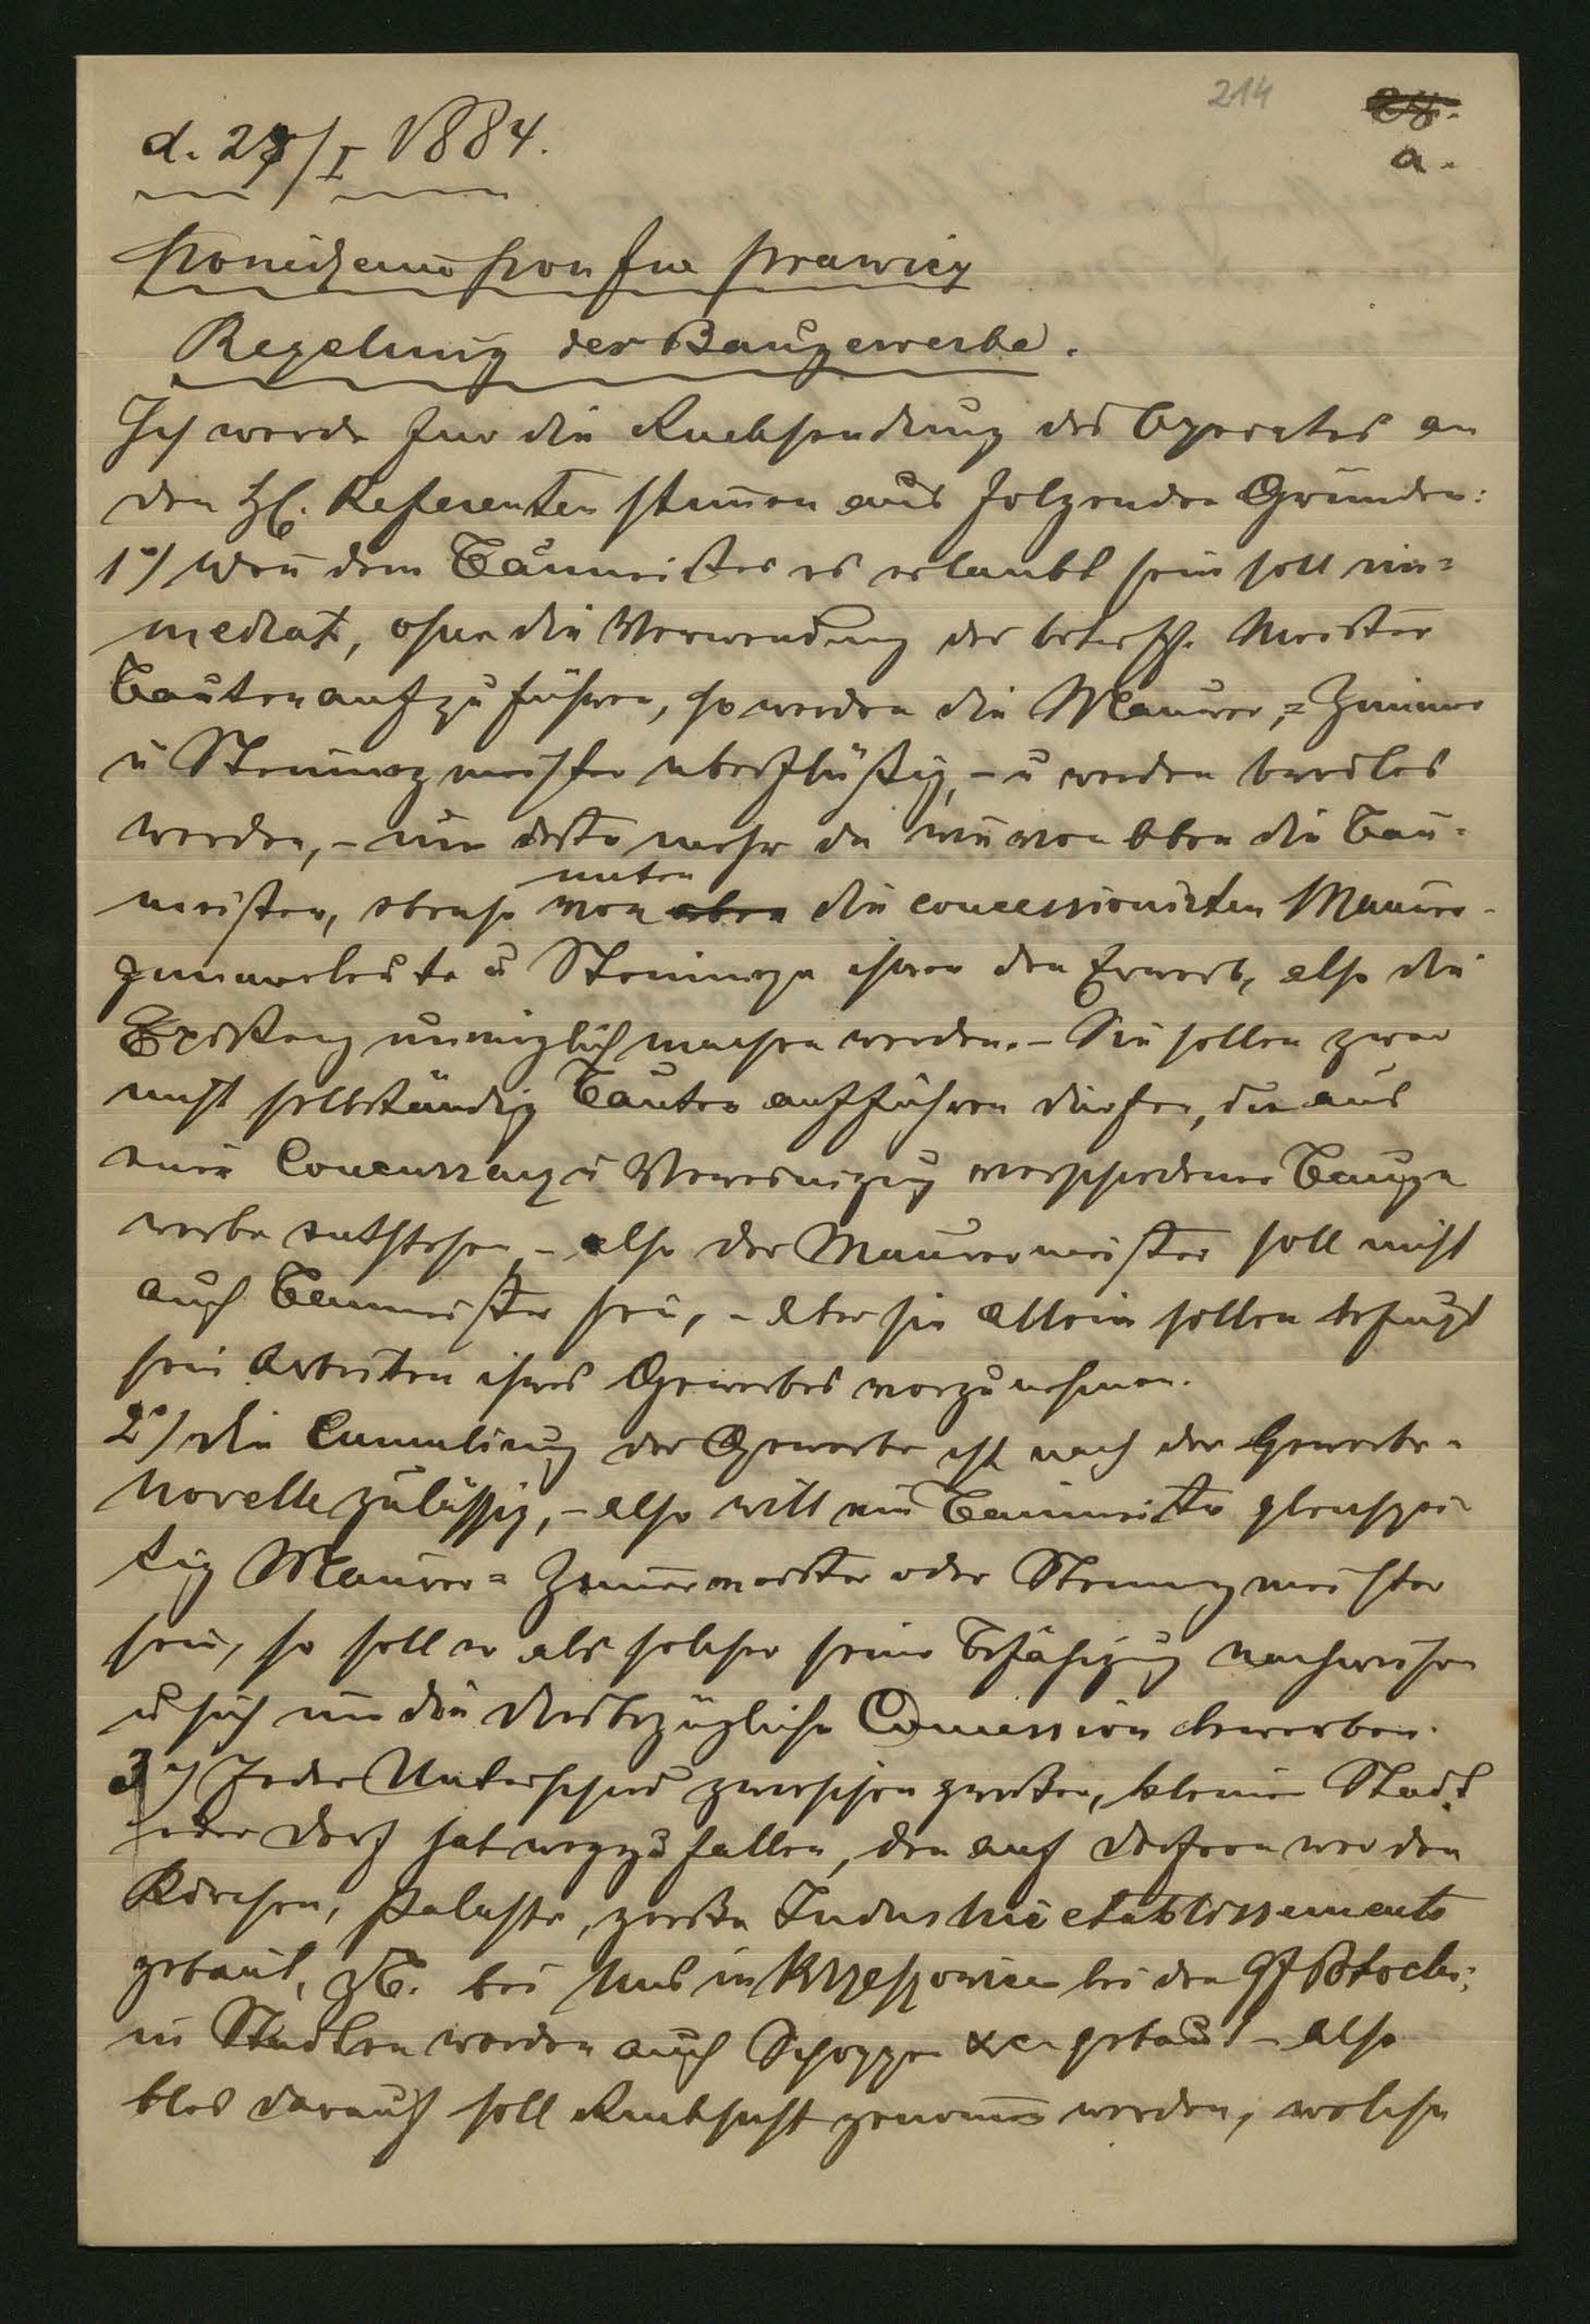 214
28.
a.
d. 28/I 1884.
Regelung der Baugewerbe.
Ich werde fur die Rucksendung des Operates an
den H. Referenten stimen aus folgenden Grunden:
1°) Wen dem Baumeister es erlaubt sein soll im=
mediat, ohne die Verwendung der betreff. Meister
Bauten aufzuführen, so werden die Maurer,= Zimer
u Steinmez meister uberflüßig, – u werden brodlos
werden, – um desto mehr da wie von Oben die Bau=
meister, ebenso von oben unten die concessionirten Maurer-
zimerleute u Steinmeze ihnen den Erwerb, also die
Existenz unmöglich machen werden. – Sie sollen zwar
nicht selbständig Bauten aufführen durfen, die aus
einer Concurrenz u Vereinigug verschiedener Bauge
werbe entstehen – also der Maurermeister soll nicht
auch Baumeister sein, – aber sie allein sollen befugt
sein Arbeiten ihres Gewerbes vorzunehmen.
2°) Die Cumulirug der Gewerbe ist nach der Gewerbe-
Novelle zulässig, – also will ein Baumeister gleichzei-
tig Maurer= Zimermeister oder Steinmezmeister
sein, so soll er als solcher seine Befähigug nachweisen
u sich um die diesbezügliche Concession bewerben.
3°) Jeder Unterschied zwischen großer, kleiner Stadt
oder Dorf hat wegzufallen, den auf Dorfern werden
Kirchen, Palaste, große Industrie etablissements
gebaut, zB. bei Uns in Krzeszowice bei den Gf Potocki;
in Stadten werden auch Schoppen &c. gebaut – also
blos darauf soll Rucksicht genomen werden, welche